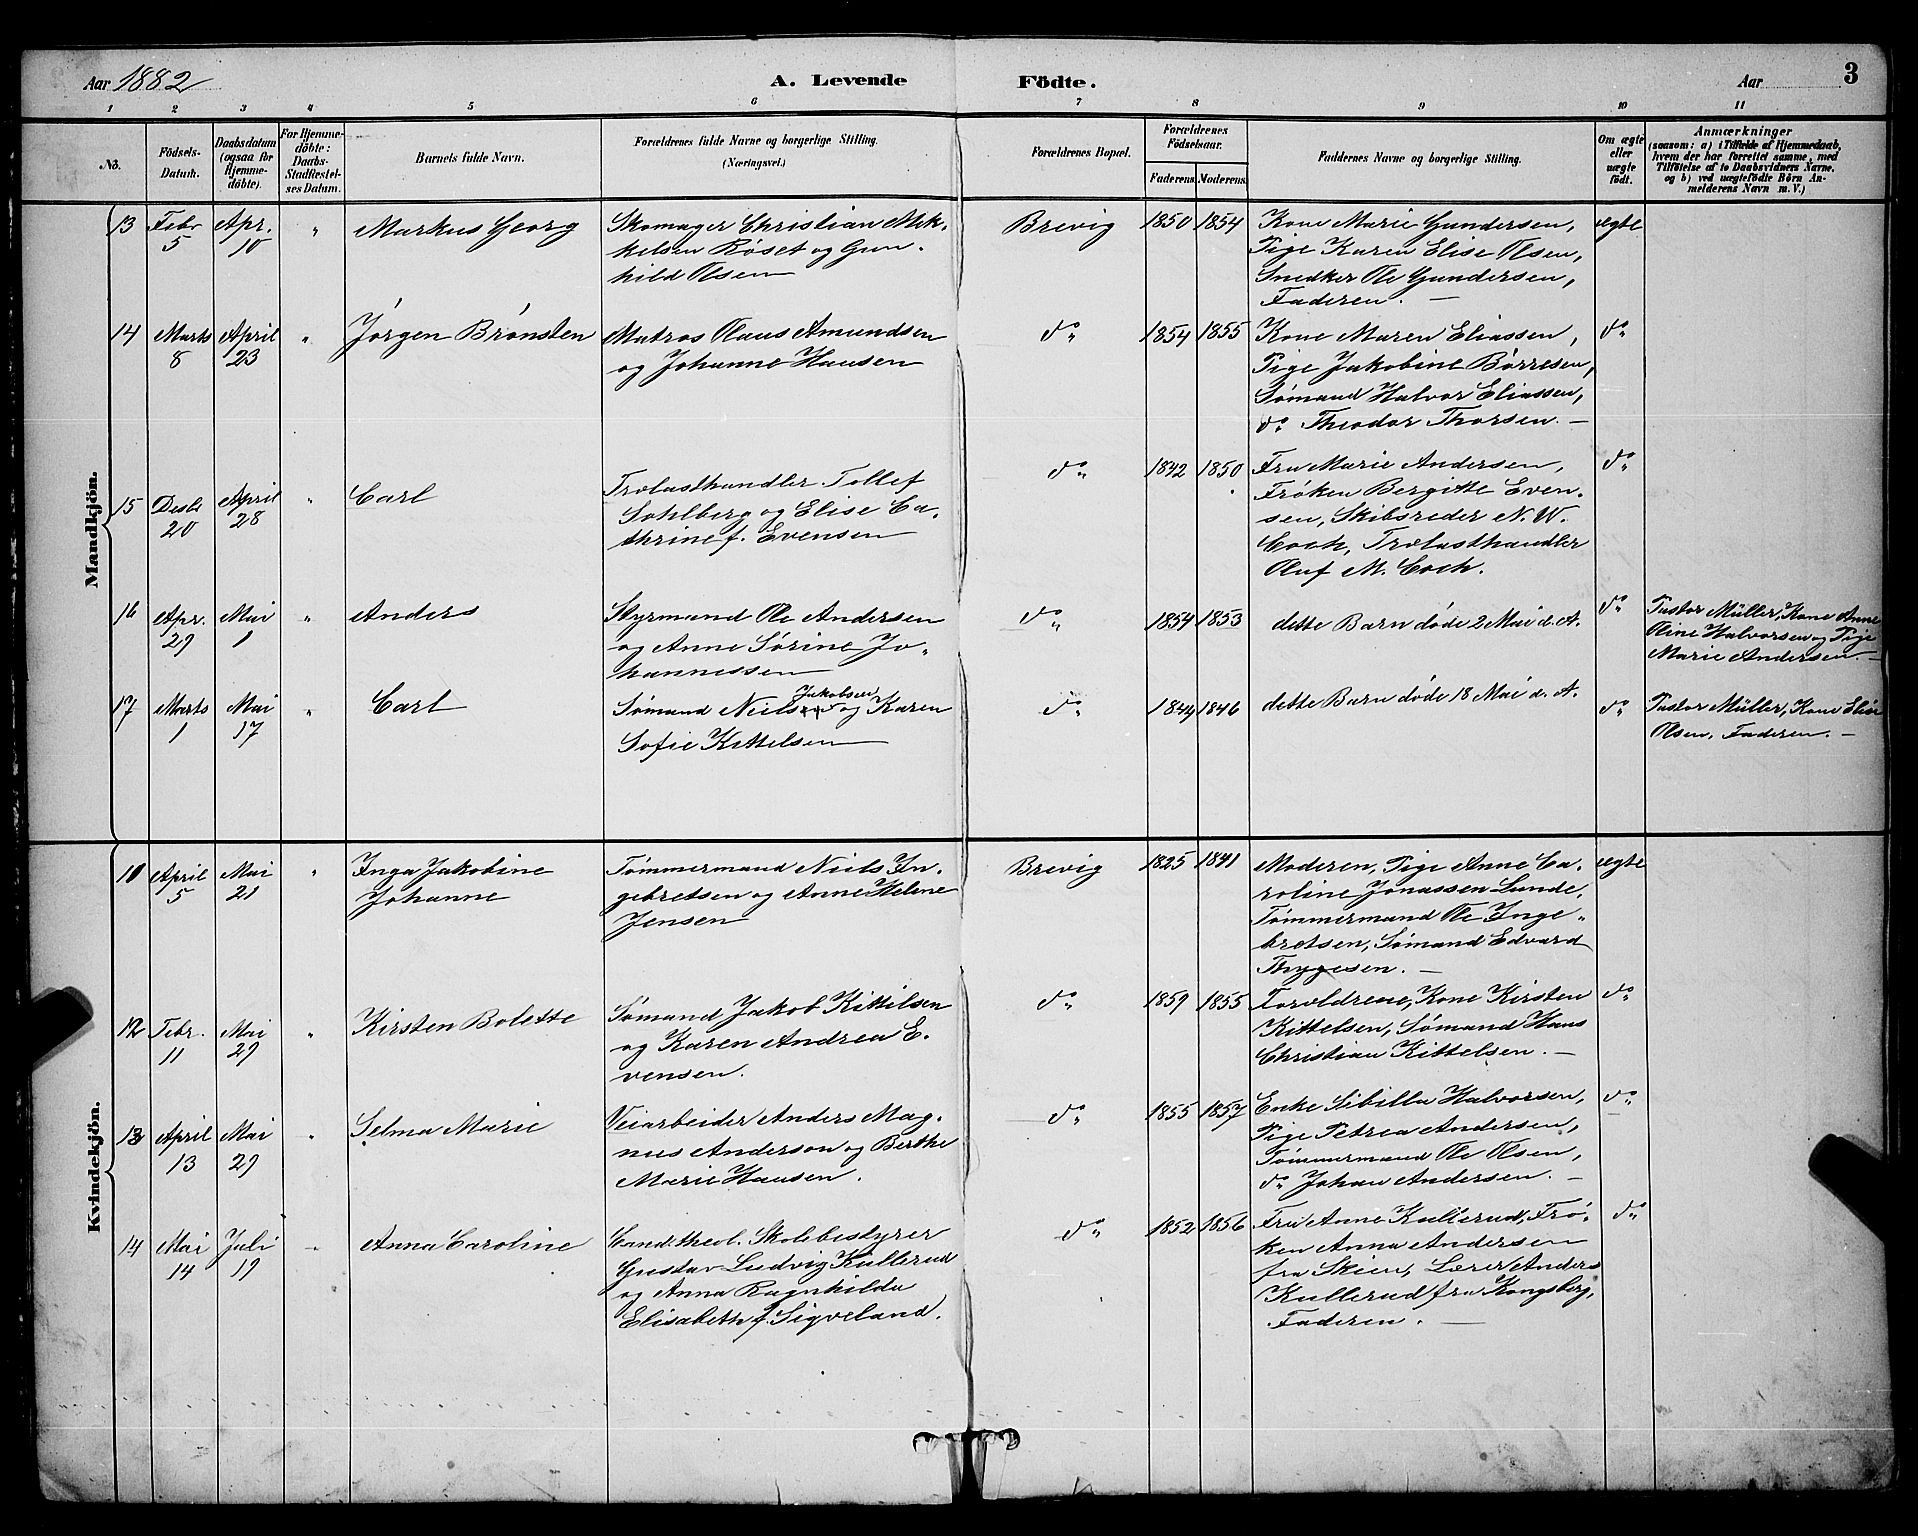 Aar 1882
A. Levende Födte.
Aar
3
1 2 3 4 5 6 7 8 9 10 11
No.
Födsels-
Datum.
Daabsdatum
(ogsaa för
Hjemme-
döbte).
For Hjemme-
döbte:
Daabs-
Stadfæstel-
ses Datum.
Barnets fulde Navn.
Forældrenes fulde Navne og borgerlige Stilling.
(Næringsvei.)
Forældrenes Bopæl.
Forældrenes
Födselsaar.
Faderens. Moderens.
Faddernes Navne og borgerlige Stilling.
Om ægte
eller
uægte
födt.
Anmærkninger
(saasom: a) i Tilfælde af Hjemmedaab,
hvem der har forrettet samme, med
Tilföielse af to Daabsvidners Navne,
og b) ved uægtefödte Börn An-
melderens Navn m. V.)
Mandkjön.
13 Febr 5 Apr. 10 " Markus Georg
Skomager Christian Mik-
kelsen Røset og Gun-
hild Olsen
Brevig 1850 1854
Kone Marie Gundersen,
Pige Karen Elise Olsen,
Snedker Ole Gundersen,
Faderen. —
ægte
14 Marts 8 April 23 " Jørgen Brønsten
Matros Olaus Amundsen
og Johanne Hansen
do 1854 1855
Kone Maren Eliassen,
Pige Jakobine Børresen,
Sømand Halvor Eliassen,
do Theodor Thorsen. —
do
15 Decbr 20 April 28 " Carl
Trælasthandler Tollef
Sohlberg og Elise Ca-
thrine f. Evensen
do 1842 1850
Fru Marie Andersen,
Frøken Bergitte Even-
sen, Skibsreder N. W.
Coch, Trælasthandler
Oluf M. Coch.
do
16 Apr. 29 Mai 1 " Anders
Styrmand Ole Andersen
og Anne Sørine Jo-
hannessen
do 1854 1853
dette Barn døde 2 Mai d. A.
do
Pastor Müller, Kone Anne
Oline Halvorsen og Pige
Marie Andersen. —
17 Marts 1 Mai 17 " Carl
Jakobsen
Sømand Niels og Karen
Sofie Kittelsen
do 1844 1846
dette Barn døde 18 Mai d. A.
do
Pastor Müller, Kone Elise
Olsen, Faderen. —
Kvindekjön.
11 April 5 Mai 21 " Inga Jakobine
Johanne
Tømmermand Niels In-
gebretsen og Anne Helene
Jensen
Brevig 1825 1841
Moderen, Pige Anne Ca-
roline Jonassen Lunde,
Tømmermand Ole Inge-
bretsen, Sømand Edvard
Thygesen. —
ægte
12 Febr. 11 Mai 29 " Kirsten Bolette
Sømand Jakob Kittilsen
og Karen Andrea E-
vensen.
do 1859 1855
Forældrene, Kone Kirsten
Kittelsen, Sømand Hans
Christian Kittelsen. —
do
13 April 13 Mai 29 " Selma Marie
Veiarbeider Anders Mag-
nus Anderson og Berthe
Marie Hansen.
do 1855 1857
Enke Sibilla Halvorsen,
Pige Petrea Andersen,
Tømmermand Ole Olsen,
do Johan Andersen. —
do
14 Mai 14 Juli 19 " Anna Caroline
Cand. theol. Skolebestyrer
Gustav Ludvig Kullerud
og Anna Ragnhilda
Elisabeth f. Sigveland.
do 1852 1856
Fru Anne Kullerud, Frø-
ken Anna Andersen
fra Skien, Lærer Anders
Kullerud fra Kongsberg,
Faderen. —
do